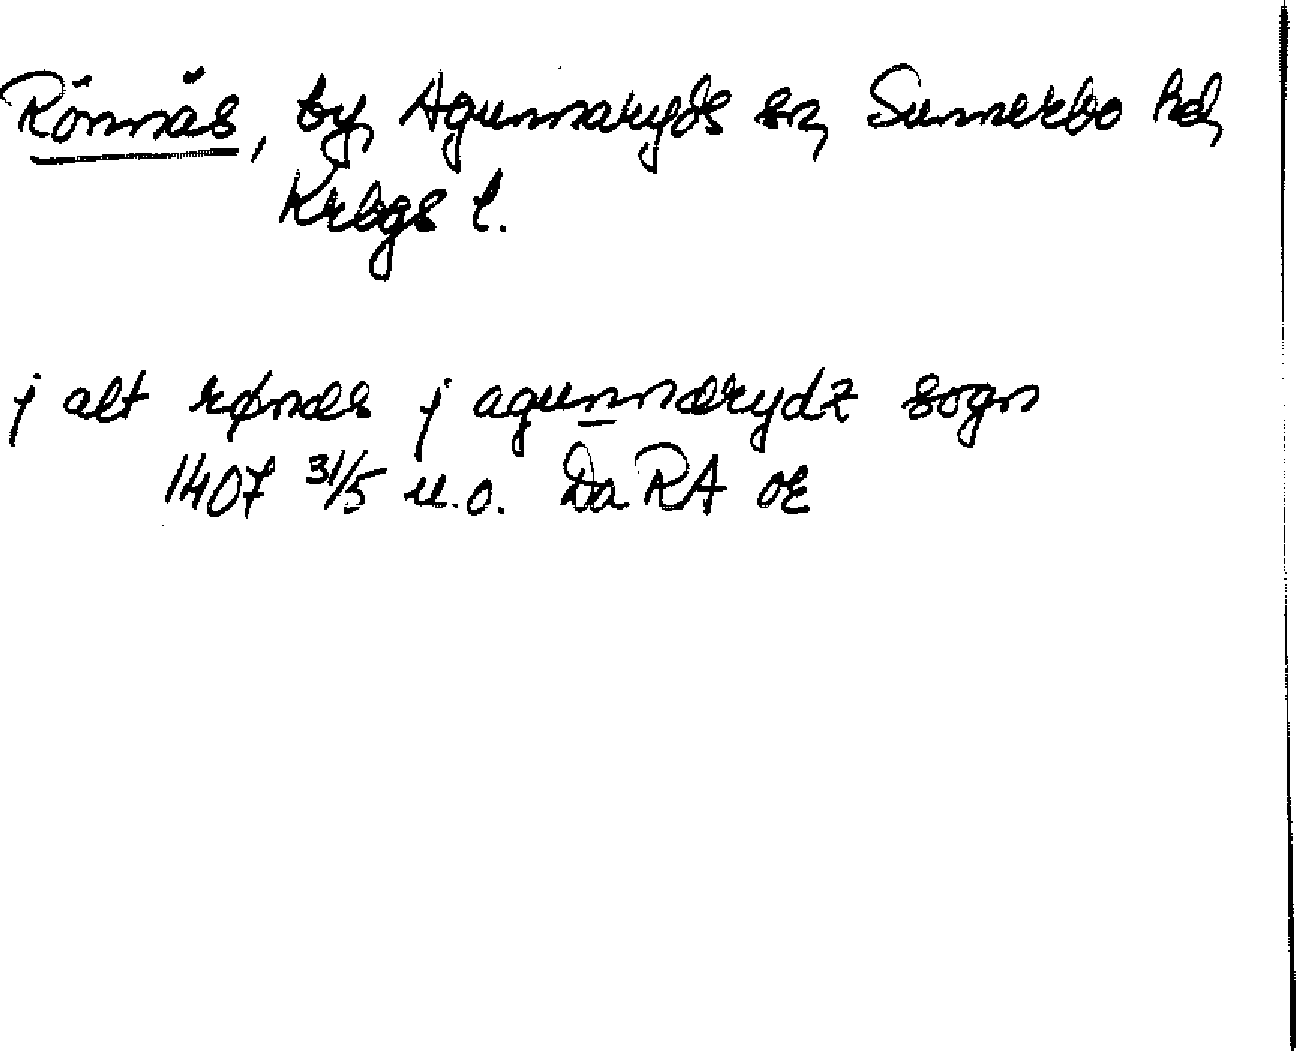 Rönnäs, by, Agunnaryds sn, Sunnerbo hd,
Krbgs l.
j alt rønæs j agunnærydz sogn
1407 31/5 u.o. Da RA OE